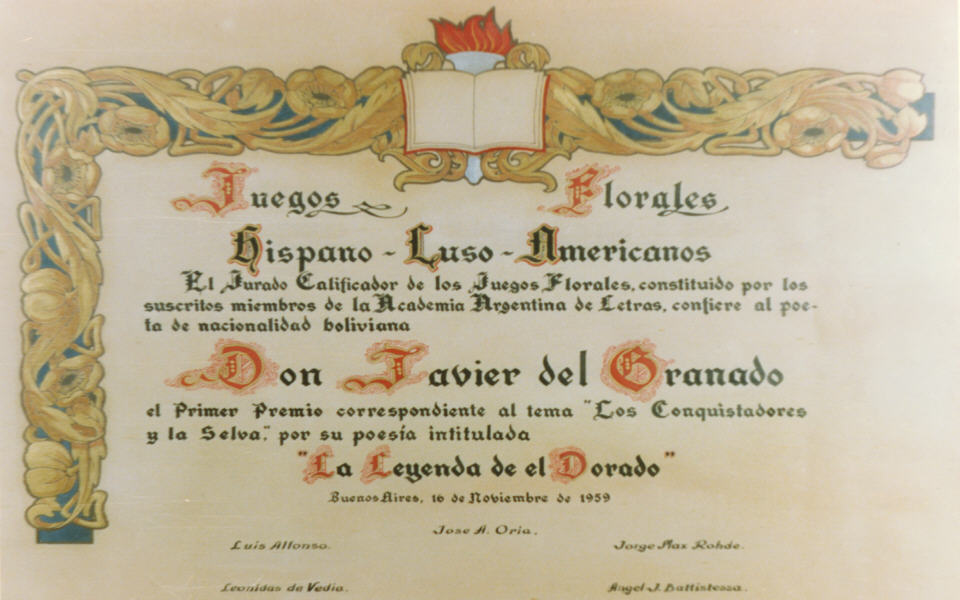 Juegos Florales
Hispano - Luso - Americanos
El Jurado Calificador de los Juegos Florales, constituido por los
suscritos miembros de la Academia Argentina de Letras, confiere al poe-
ta de nacionalidad boliviana
Don Javier del Granado
el Primer Premio correspondiente al tema "Los Conquistadores
y la Selva," por su poesía intitulada
"La Leyenda de el Dorado"
Buenos Aires, 16 de Noviembre de 1959
Jose A. Oria.
Luis Alfonso. Jorge Max Rohde.
Leonidas de Vedia. Angel J. Battistessa.